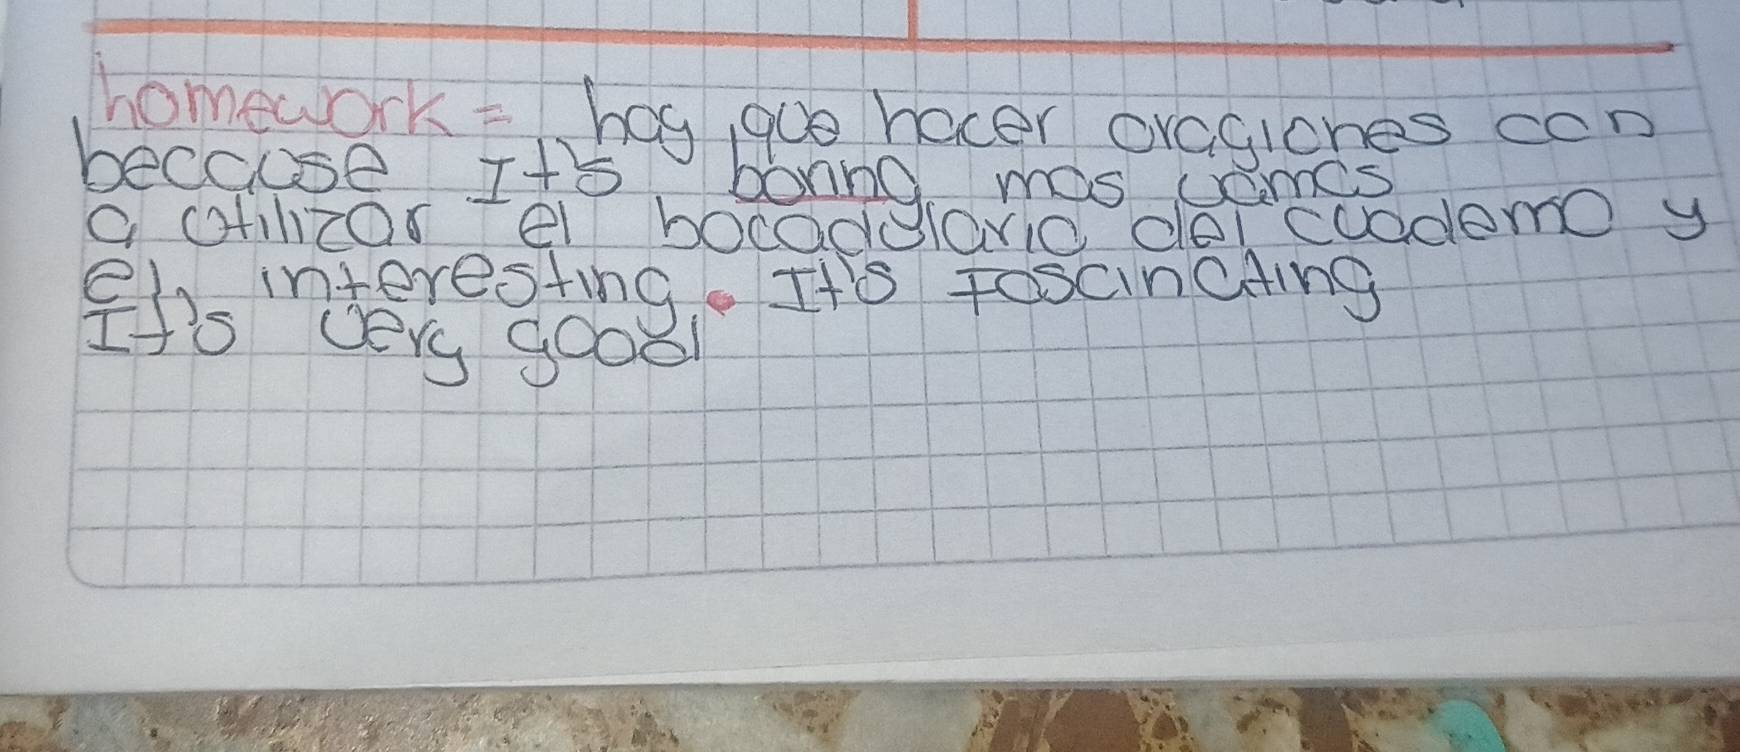 homework = hay que hacer oraciones con
because It's boring mas vamos
a utilizar el bocadulario del cuaderno y
el interesting. It's Foscinating
It's very good